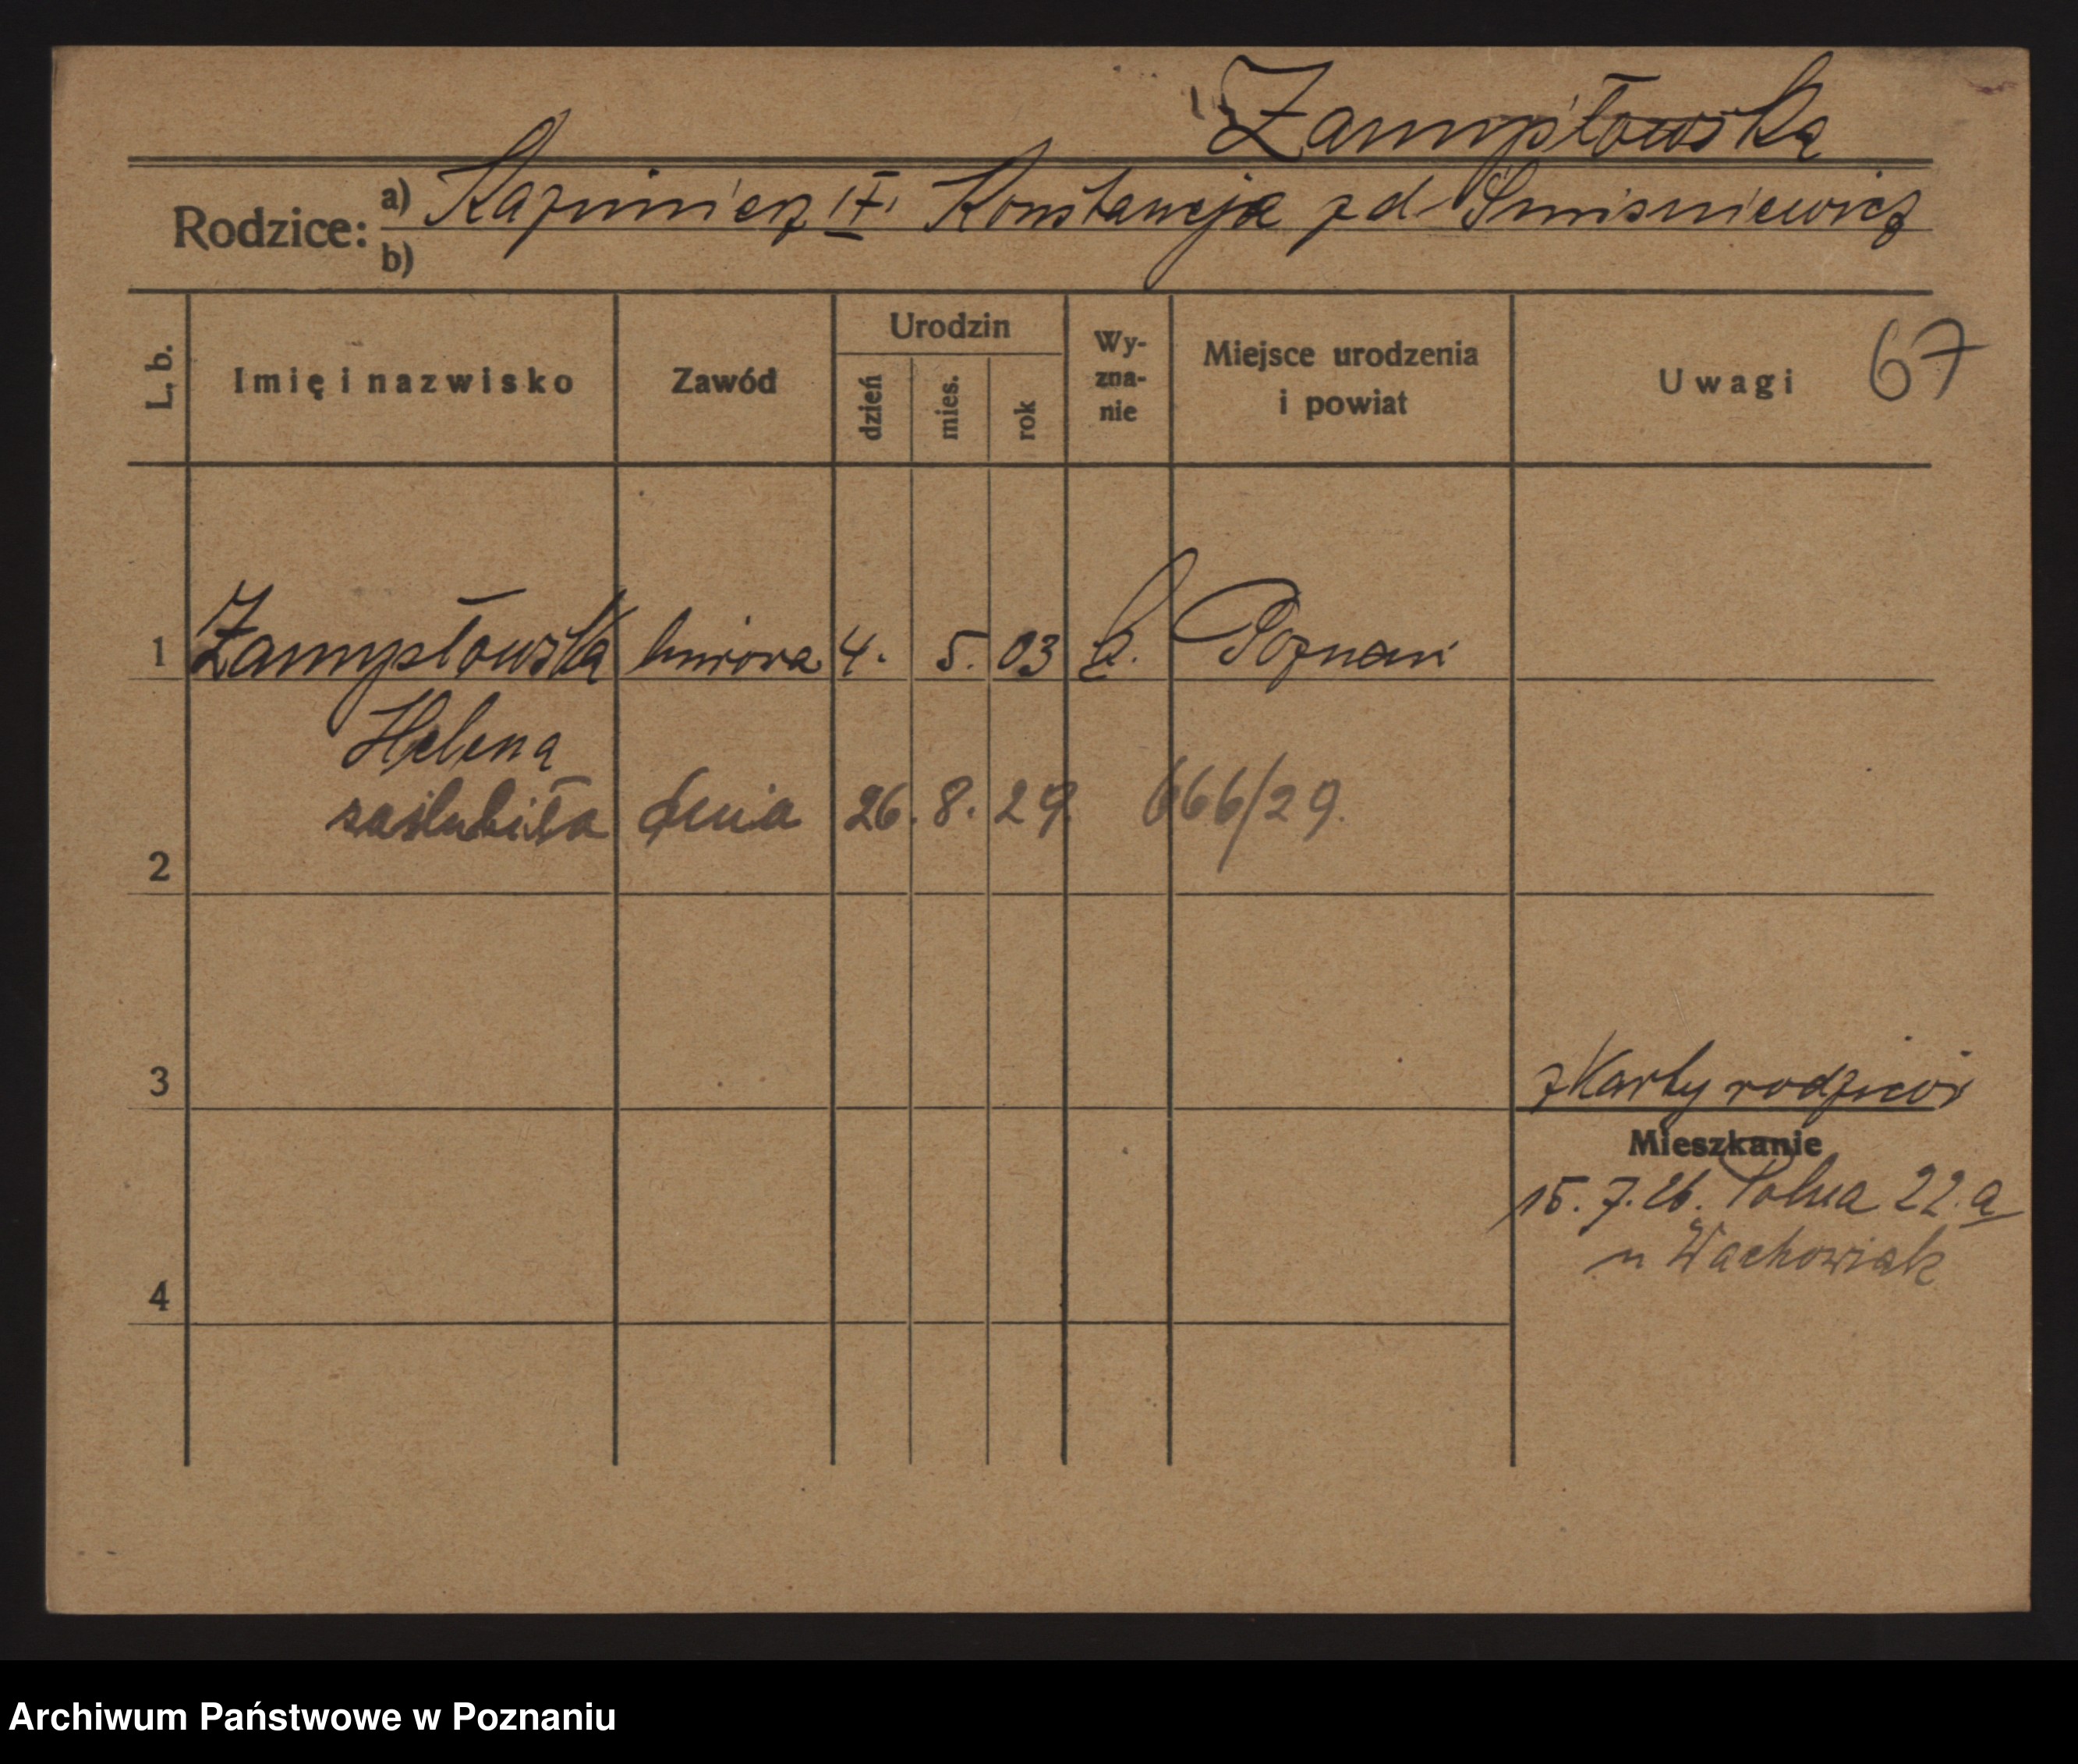 Zamysłowska
Rodzice: a) Kazimierz IX. Konstancja z d. Śmiśniewicz
b)
L. b. Imię i nazwisko Zawód Urodzin dzień mies. rok Wyznanie Miejsce urodzenia i powiat Uwagi 67
1 Zamysłowska biurowa 4. 5. 03 Poznań
Helena
zaślubiła dnia 26. 8. 29. 666/29.
2
3 z Karty rodziców
Mieszkanie
15. 7. 26. Polna 22.a
u Wachowiak
4
Archiwum Państwowe w Poznaniu